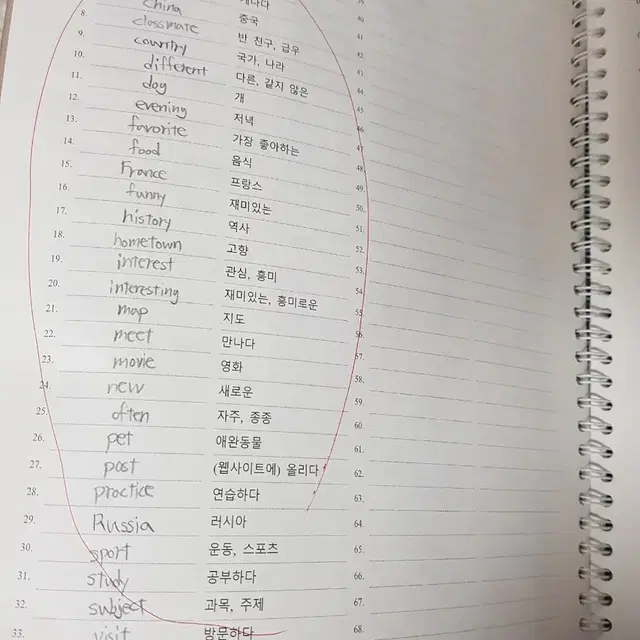 China 중국
8. classmate 반 친구, 급우 43.
9. country 국가, 나라 44.
10. different 다른, 같지 않은 45.
11. dog 개 46.
12. evening 저녁 47.
13. favorite 가장 좋아하는 48.
14. food 음식 49.
15. France 프랑스 50.
16. funny 재미있는 51.
17. history 역사 52.
18. hometown 고향 53.
19. interest 관심, 흥미 54.
20. interesting 재미있는, 흥미로운 55.
21. map 지도 56.
22. meet 만나다 57.
23. movie 영화 58.
24. new 새로운 59.
25. often 자주, 종종 60.
26. pet 애완동물 61.
27. post (웹사이트에) 올리다 62.
28. practice 연습하다 63.
29. Russia 러시아 64.
30. sport 운동, 스포츠 65.
31. study 공부하다 66.
32. subject 과목, 주제 67.
33. visit 방문하다 68.